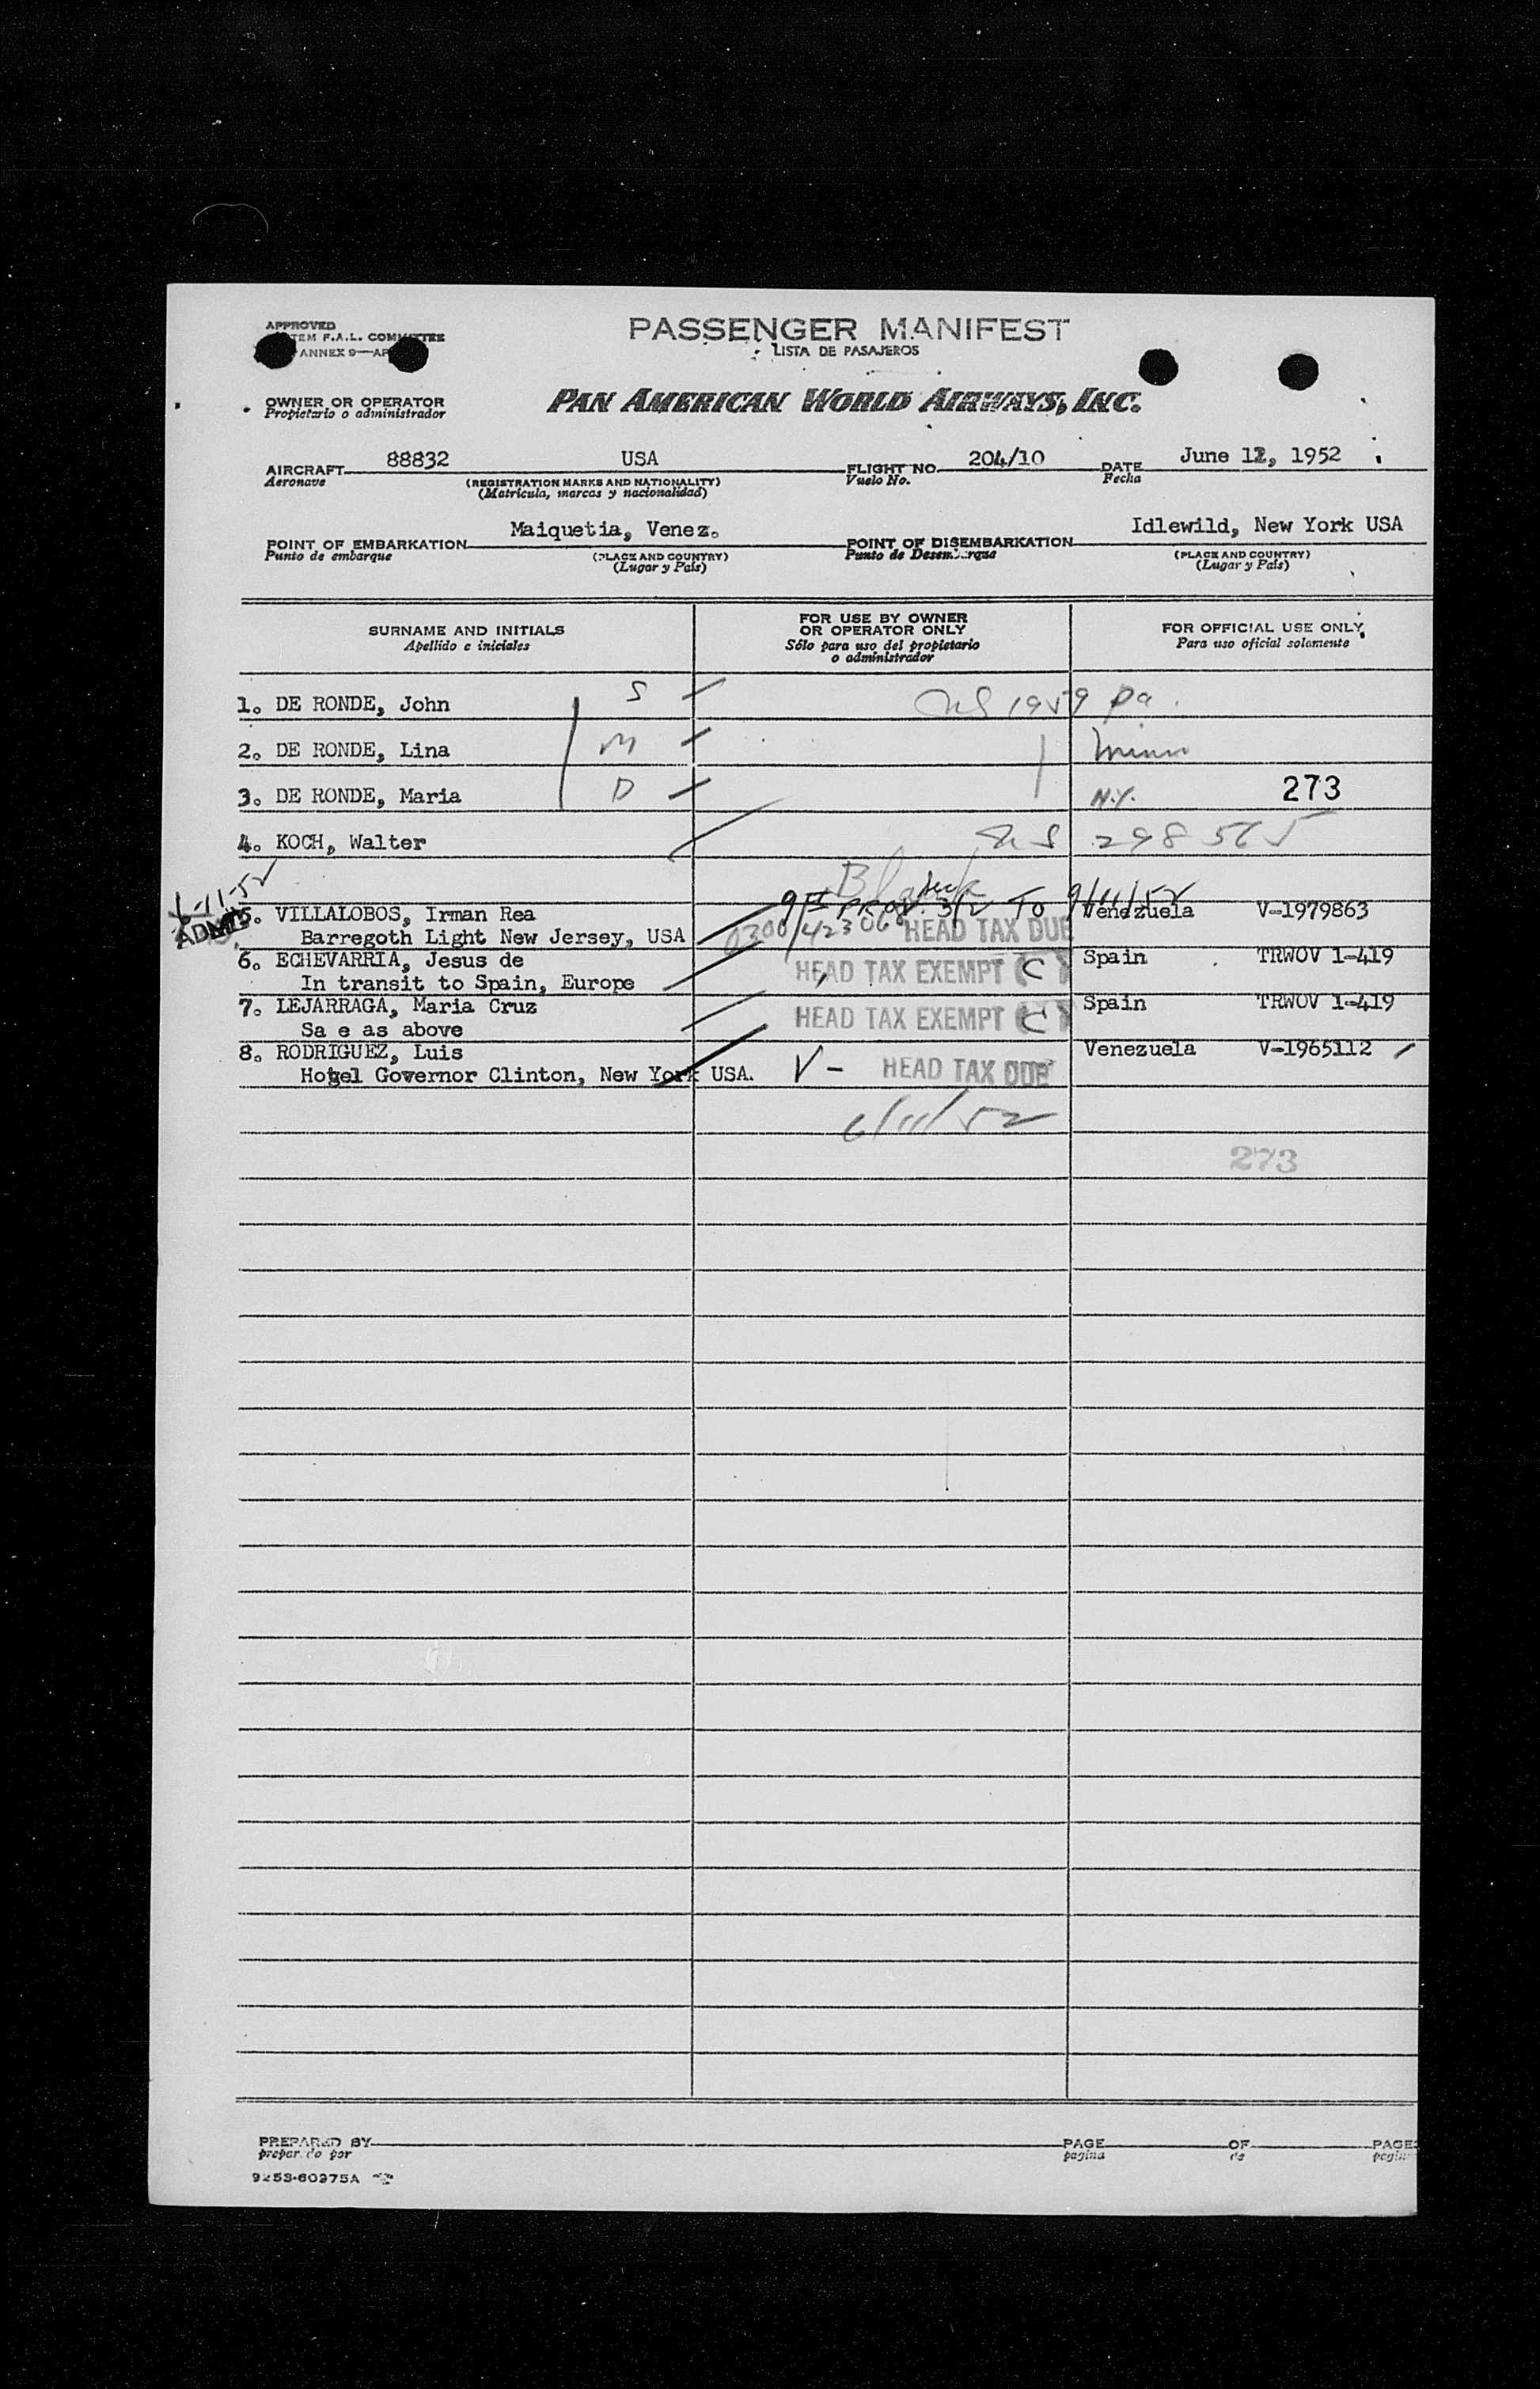 APPROVED
TEM F.A.L. COMMITTEE
ANNEX 9—AP
PASSENGER MANIFEST
LISTA DE PASAJEROS
OWNER OR OPERATOR
Propietario o administrador
PAN AMERICAN WORLD AIRWAYS, INC.
AIRCRAFT 88832 USA FLIGHT NO. 204/10 DATE June 12, 1952
Aeronave (REGISTRATION MARKS AND NATIONALITY) Vuelo No. Fecha
(Matrícula, marcas y nacionalidad)
POINT OF EMBARKATION Maiquetia, Venez. POINT OF DISEMBARKATION Idlewild, New York USA
Punto de embarque (PLACE AND COUNTRY) Punto de Desembarque (PLACE AND COUNTRY)
(Lugar y País) (Lugar y País)
SURNAME AND INITIALS FOR USE BY OWNER OR OPERATOR ONLY FOR OFFICIAL USE ONLY
Apellido e iniciales Sólo para uso del propietario o administrador Para uso oficial solamente
1. DE RONDE, John S 1959 Pa.
2. DE RONDE, Lina M
3. DE RONDE, Maria D N.Y. 273
4. KOCH, Walter 298565
ADMIT
5. VILLALOBOS, Irman Rea 3/2 TO 9/11/52 Venezuela V-1979863
Barregoth Light New Jersey, USA 0300/423068 HEAD TAX DUE
6. ECHEVARRIA, Jesus de HEAD TAX EXEMPT (C) Spain TRWOV 1-419
In transit to Spain, Europe
7. LEJARRAGA, Maria Cruz HEAD TAX EXEMPT (C) Spain TRWOV 1-419
Sa e as above
8. RODRIGUEZ, Luis Venezuela V-1965112
Hotel Governor Clinton, New York USA. V - HEAD TAX DUE
6/11/52
273
PREPARED BY PAGE OF PAGES
preparado por pagina de
9253-60975A